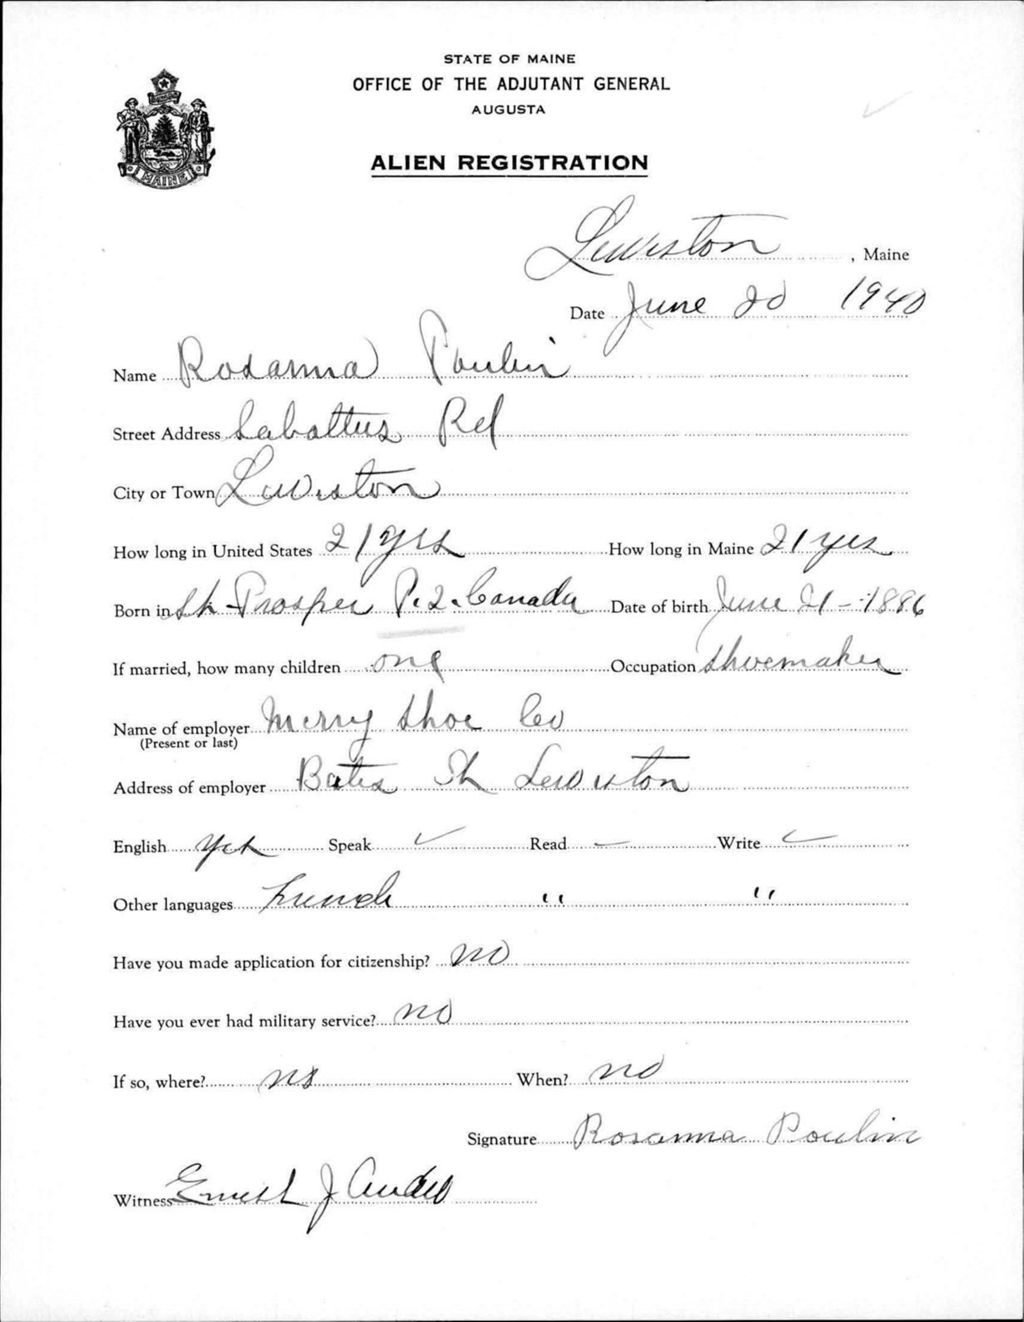 STATE OF MAINE
OFFICE OF THE ADJUTANT GENERAL
AUGUSTA
ALIEN REGISTRATION
MAINE
Lewiston, Maine
Date June 20 1940
Name Rosanna Poulin
Street Address Sabattus Rd
City or Town Lewiston
How long in United States 21 yrs How long in Maine 21 yrs
Born in St. Prosper P.Q. Canada Date of birth June 21 - 1886
If married, how many children one Occupation Shoemaker
Name of employer Merry Shoe Co
(Present or last)
Address of employer Bates St Lewiston
English yes Speak ✓ Read ✓ Write ✓
Other languages French " "
Have you made application for citizenship? no
Have you ever had military service? no
If so, where? no When? no
Signature Rosanna Poulin
Witness Ernest J